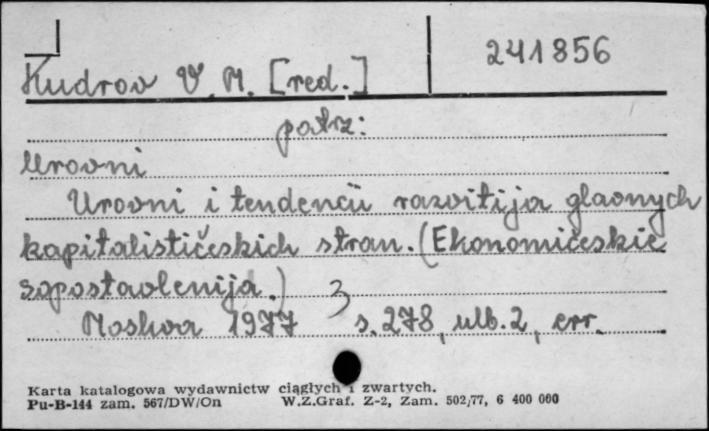 241856
Kudrov V. M. [red.]
patrz:
Urovni
Urovni i tendencii razvitija glavnych
kapitalističeskich stran. (Ekonomičeskie
sopostavlenija.) 3
Moskva 1977 s. 278, ulb. 2, err.
Karta katalogowa wydawnictw ciągłych i zwartych.
Pu-B-144 zam. 567/DW/On W.Z.Graf. Z-2, Zam. 502/77, 6 400 000